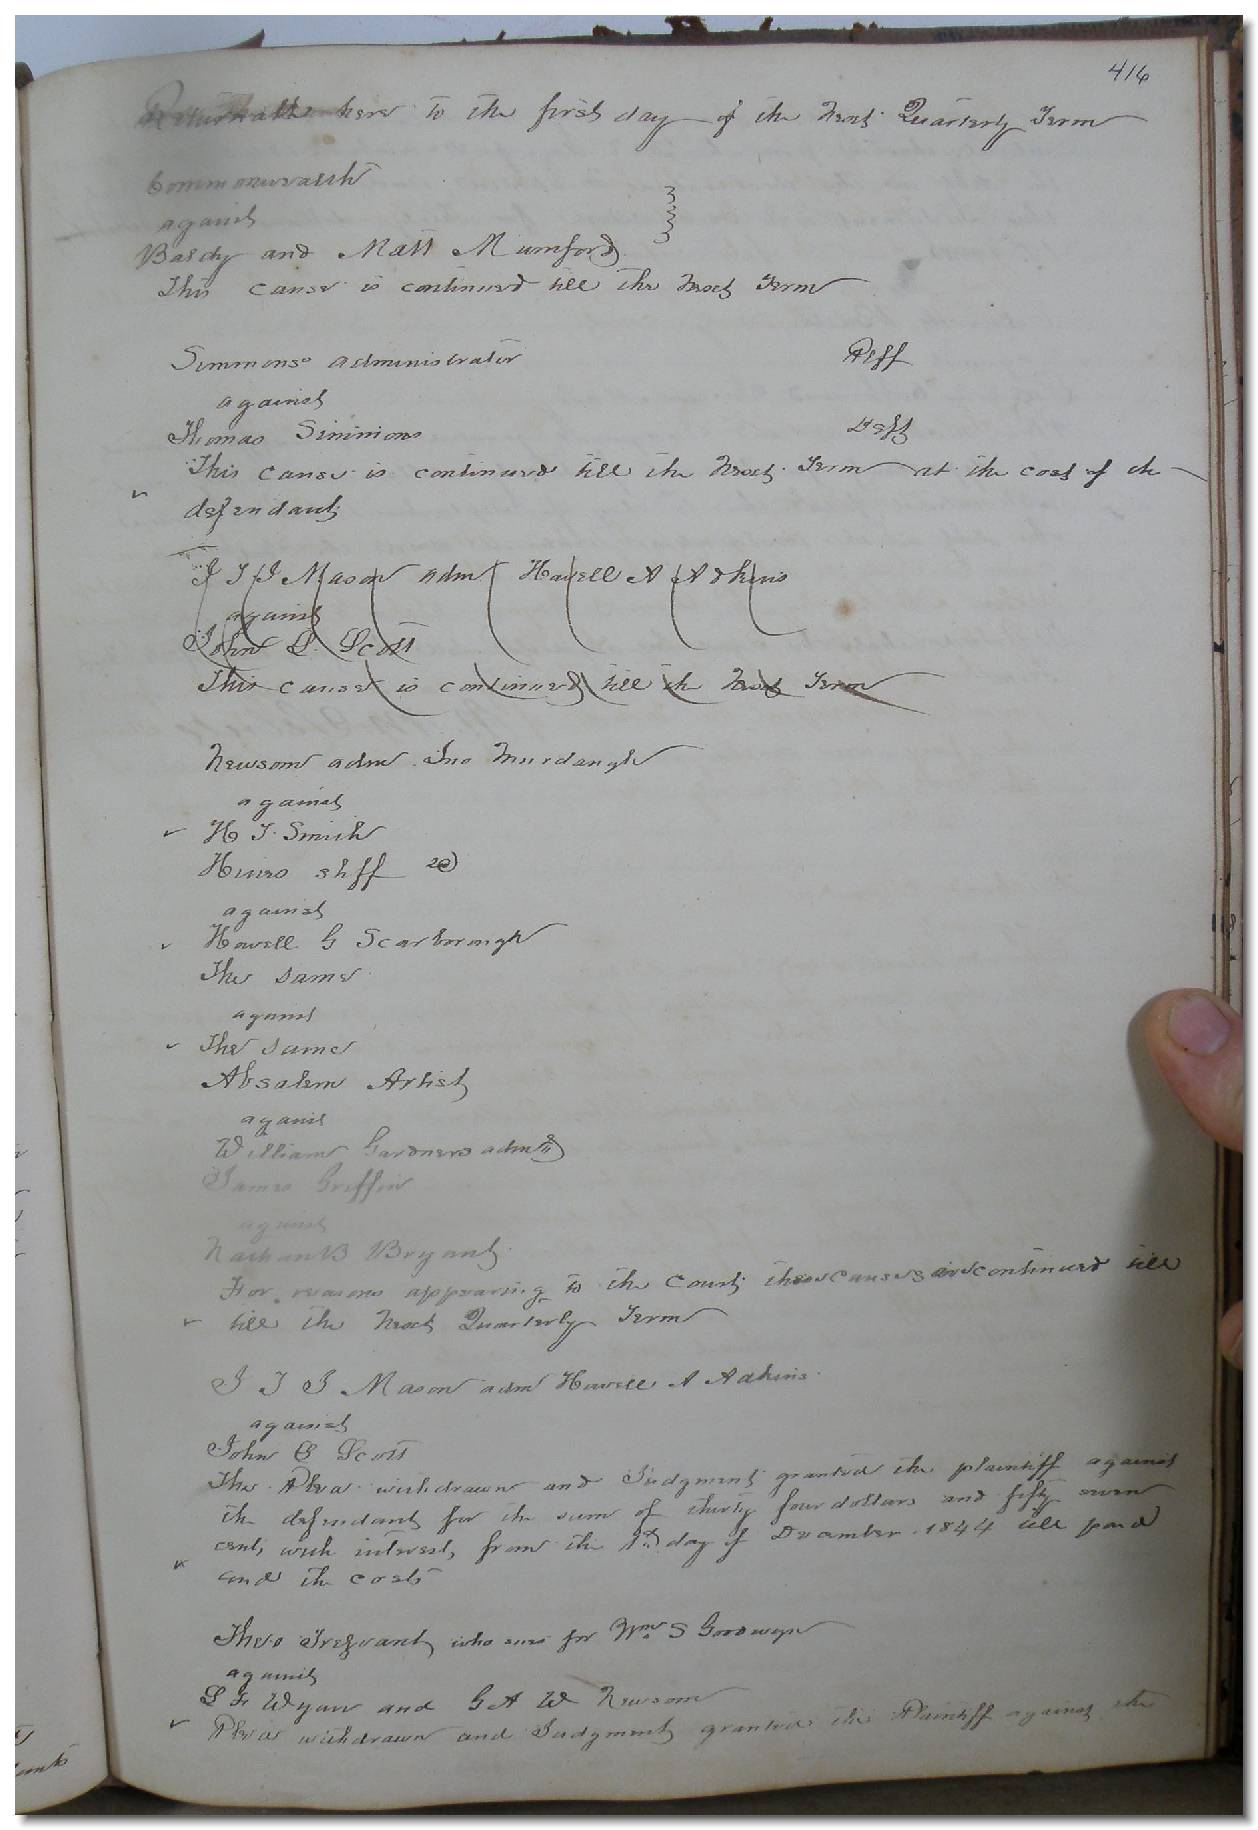 416
Returnable here to the first day of the Next Quarterly Term
Commonwealth
against
Baldy and Matt Mumford
This cause is continued till the Next Term
Simmons administrator Plff
against
Thomas Simmons Deft
This cause is continued till the Next Term at the cost of the
defendant
J T J Mason adm Howell A Adkins
against
John Scott
This cause is continued till the Next Term
Newsom adm Jno Murdaugh
against
H T Smith
Hines shff
against
Howell G Scarborough
The same
against
The same
Absalem Artist
against
William Gardners adm
James Griffin
against
Nathan B Bryant
For reasons appearing to the Court these causes are continued till
till the Next Quarterly Term
J T J Mason adm Howell A Adkins
against
John Scott
The Plea withdrawn and Judgment granted the plaintiff against
the defendant for the sum of thirty four dollars and fifty seven
cents with interest from the day of December 1844 till paid
and the costs
Theo Trezvant who sues for Wm S Goodwyn
against
and G A W Newsom
Plea withdrawn and Judgment granted the Plaintiff against the